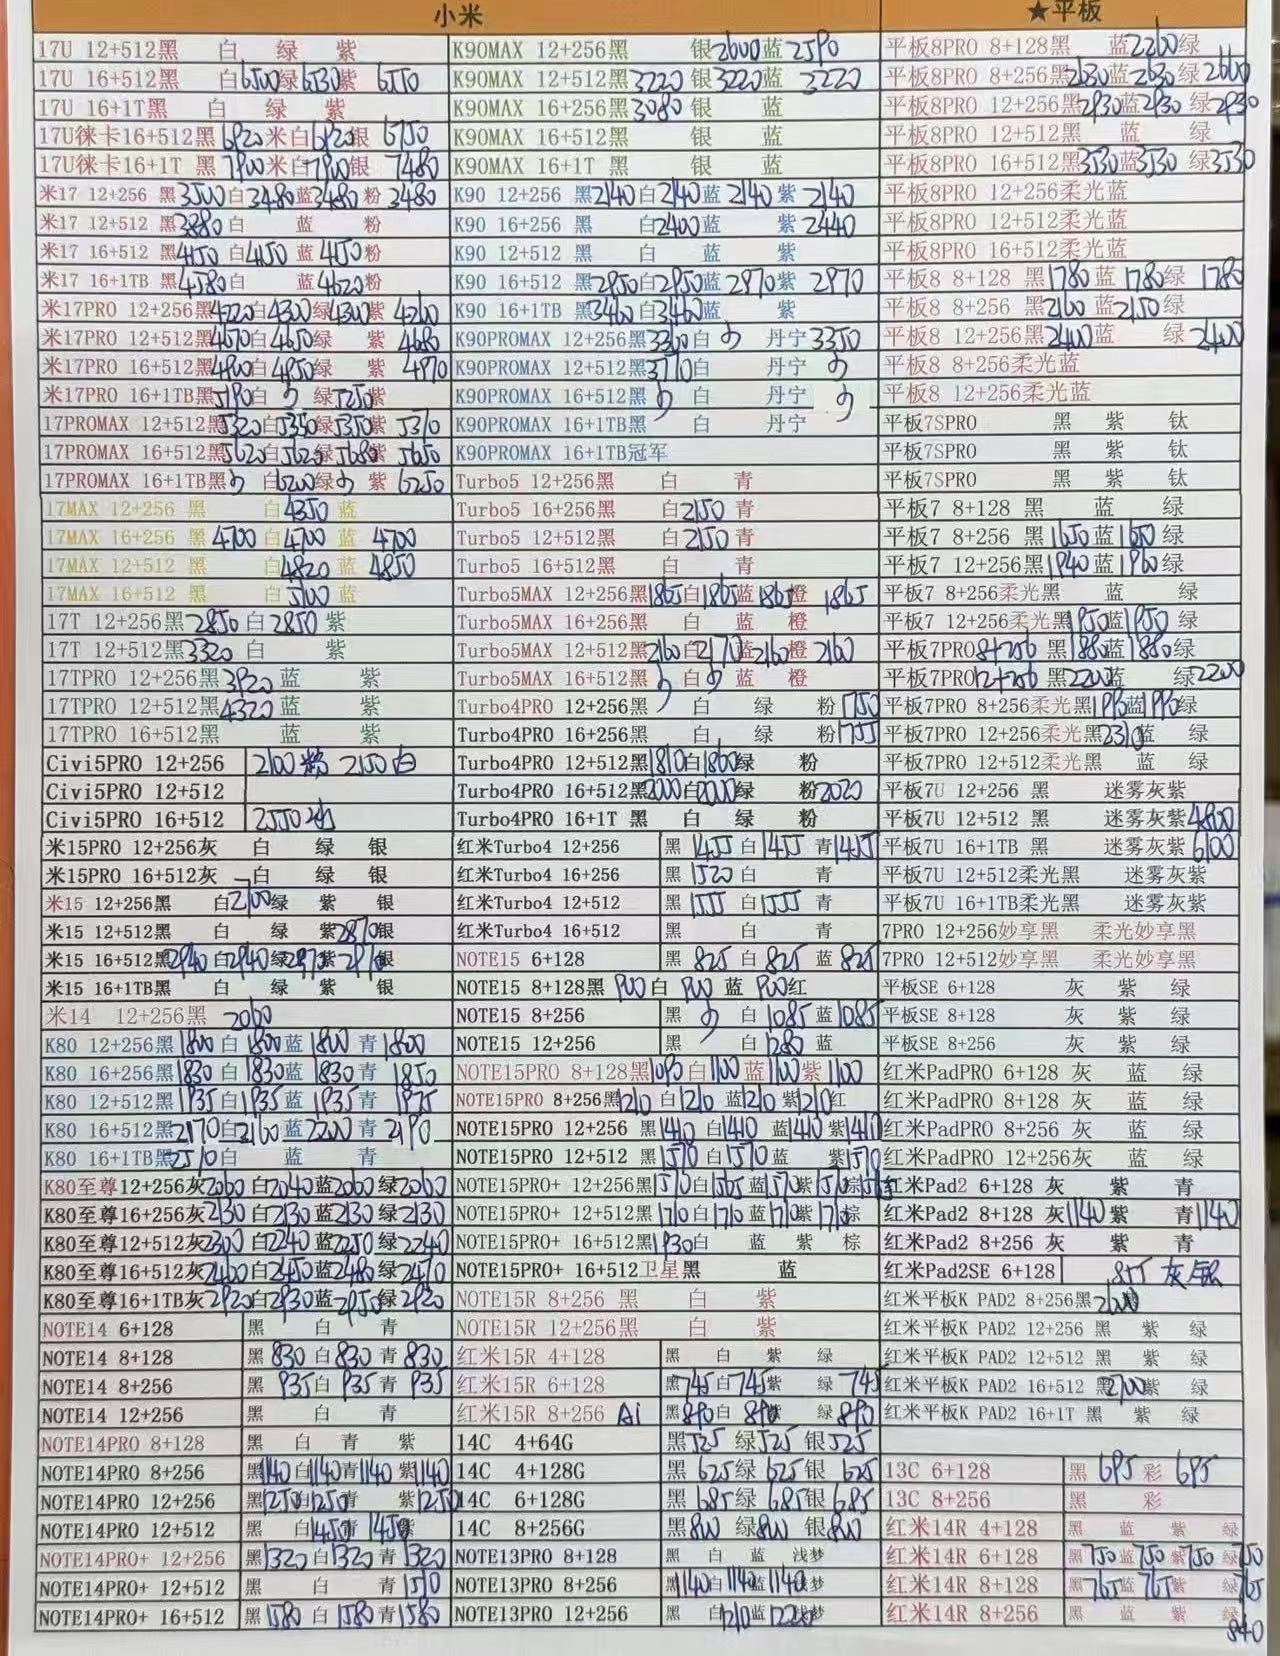 小米
★平板
17U 12+512黑 白 绿 紫
17U 16+512黑 白6500绿6530紫 6550
17U 16+1T黑 白 绿 紫
17U徕卡16+512黑6920米白6920银 6750
17U徕卡16+1T 黑7900米白7900银 7480
米17 12+256 黑3500白3480蓝3480粉 3480
米17 12+512 黑3880白 蓝 粉
米17 16+512 黑4150白4150蓝4150粉
米17 16+1TB 黑4580白 蓝4620粉
米17PRO 12+256黑4220白4300绿4300紫 4260
米17PRO 12+512黑4670白4650绿 紫 4680
米17PRO 16+512黑4900白4950绿 紫 4970
米17PRO 16+1TB黑5190白 绿5250紫
17PROMAX 12+512黑5320白5350绿5350紫 5310
17PROMAX 16+512黑5620白5620绿5680紫 5650
17PROMAX 16+1TB黑 白6200绿 紫 6250
17MAX 12+256 黑 白4350蓝
17MAX 16+256 黑 4700白4700蓝 4700
17MAX 12+512 黑 白4820蓝 4850
17MAX 16+512 黑 白5100蓝
17T 12+256黑2850白2850紫
17T 12+512黑3320白 紫
17TPRO 12+256黑3920蓝 紫
17TPRO 12+512黑4320蓝 紫
17TPRO 16+512黑 蓝 紫
Civi5PRO 12+256 2100粉 2150白
Civi5PRO 12+512
Civi5PRO 16+512 2550
米15PRO 12+256灰 白 绿 银
米15PRO 16+512灰 白 绿 银
米15 12+256黑 白2700绿 紫 银
米15 12+512黑 白 绿 紫2870银
米15 16+512黑2940白2940绿2970紫2910银
米15 16+1TB黑 白 绿 紫 银
米14 12+256黑 2060
K80 12+256黑1800白1800蓝1800青1800
K80 16+256黑1830白1830蓝1830青1850
K80 12+512黑1935白1935蓝1935青1975
K80 16+512黑2170白2160蓝2200青2190
K80 16+1TB黑2510白 蓝 青
K80至尊12+256灰2060白2040蓝2060绿2060
K80至尊16+256灰2130白2130蓝2130绿2130
K80至尊12+512灰2300白2240蓝2250绿2240
K80至尊16+512灰2460白2450蓝2480绿2470
K80至尊16+1TB灰2920白2930蓝2950绿2920
NOTE14 6+128 黑 白 青
NOTE14 8+128 黑830白830青830
NOTE14 8+256 黑935白935青935
NOTE14 12+256 黑 白 青
NOTE14PRO 8+128 黑 白 青 紫
NOTE14PRO 8+256 黑1140白1140青1140紫1140
NOTE14PRO 12+256 黑1250白1250青 紫1250
NOTE14PRO 12+512 黑 白1450青1450紫
NOTE14PRO+ 12+256 黑1320白1320青1320
NOTE14PRO+ 12+512 黑 白 青1510
NOTE14PRO+ 16+512 黑1580白1580青1580
K90MAX 12+256黑 银2600蓝2590
K90MAX 12+512黑3220银3220蓝 3220
K90MAX 16+256黑3080银 蓝
K90MAX 16+512黑 银 蓝
K90MAX 16+1T 黑 银 蓝
K90 12+256 黑2140白2140蓝2140紫2140
K90 16+256 黑 白2400蓝 紫2440
K90 12+512 黑 白 蓝 紫
K90 16+512 黑2950白2950蓝2970紫 2970
K90 16+1TB 黑3460白3460蓝 紫
K90PROMAX 12+256黑3360白 丹宁3350
K90PROMAX 12+512黑3710白 丹宁
K90PROMAX 16+512黑 白 丹宁
K90PROMAX 16+1TB黑 白 丹宁
K90PROMAX 16+1TB冠军
Turbo5 12+256黑 白 青
Turbo5 16+256黑 白2150青
Turbo5 12+512黑 白2150青
Turbo5 16+512黑 白 青
Turbo5MAX 12+256黑1865白1865蓝1865橙 1865
Turbo5MAX 16+256黑 白 蓝 橙
Turbo5MAX 12+512黑2160白2170蓝2160橙2160
Turbo5MAX 16+512黑 白 蓝 橙
Turbo4PRO 12+256黑 白 绿 粉1750
Turbo4PRO 16+256黑 白 绿 粉1755
Turbo4PRO 12+512黑1810白1860绿 粉
Turbo4PRO 16+512黑2000白2000绿 粉2020
Turbo4PRO 16+1T 黑 白 绿 粉
红米Turbo4 12+256 黑1455白1455青1455
红米Turbo4 16+256 黑1520白 青
红米Turbo4 12+512 黑1555白1555青
红米Turbo4 16+512 黑 白 青
NOTE15 6+128 黑825白825蓝825
NOTE15 8+128黑900白900蓝900红
NOTE15 8+256 黑 白1085蓝1085
NOTE15 12+256 黑 白1280蓝
NOTE15PRO 8+128黑1090白1100蓝1100紫1100
NOTE15PRO 8+256黑1210白1210蓝1210紫1210红
NOTE15PRO 12+256 黑1410白1410蓝1410紫1410
NOTE15PRO 12+512 黑1570白1570蓝 紫1510
NOTE15PRO+ 12+256黑1570白1565蓝1570紫1570棕
NOTE15PRO+ 12+512黑1710白1710蓝1710紫1710棕
NOTE15PRO+ 16+512黑1930白 蓝 紫 棕
NOTE15PRO+ 16+512卫星黑 蓝
NOTE15R 8+256 黑 白 紫
NOTE15R 12+256黑 白 紫
红米15R 4+128 黑 白 紫 绿
红米15R 6+128 黑745白745紫 绿745
红米15R 8+256 AI 黑890白890紫 绿890
14C 4+64G 黑525绿525银525
14C 4+128G 黑625绿625银625
14C 6+128G 黑685绿685银685
14C 8+256G 黑800绿800银800
NOTE13PRO 8+128 黑 白 蓝 浅梦
NOTE13PRO 8+256 黑1140白1140蓝1140浅梦
NOTE13PRO 12+256 黑 白1210蓝1220浅梦
平板8PRO 8+128黑 蓝2260绿
平板8PRO 8+256黑2630蓝2630绿2600
平板8PRO 12+256黑2930蓝2930绿2930
平板8PRO 12+512黑 蓝 绿
平板8PRO 16+512黑3530蓝3530绿3530
平板8PRO 12+256柔光蓝
平板8PRO 12+512柔光蓝
平板8PRO 16+512柔光蓝
平板8 8+128 黑1780蓝1780绿 1780
平板8 8+256 黑2160蓝2150绿
平板8 12+256黑2400蓝 绿2400
平板8 8+256柔光蓝
平板8 12+256柔光蓝
平板7SPRO 黑 紫 钛
平板7SPRO 黑 紫 钛
平板7SPRO 黑 紫 钛
平板7 8+128 黑 蓝 绿
平板7 8+256 黑1650蓝1650绿
平板7 12+256黑1940蓝1960绿
平板7 8+256柔光黑 蓝 绿
平板7 12+256柔光黑1950蓝1950绿
平板7PRO8+256 黑1880蓝1880绿
平板7PRO12+256 黑2200蓝 绿2200
平板7PRO 8+256柔光黑1990蓝1990绿
平板7PRO 12+256柔光黑2310蓝 绿
平板7PRO 12+512柔光黑 蓝 绿
平板7U 12+256 黑 迷雾灰紫
平板7U 12+512 黑 迷雾灰紫4800
平板7U 16+1TB 黑 迷雾灰紫6100
平板7U 12+512柔光黑 迷雾灰紫
平板7U 16+1TB柔光黑 迷雾灰紫
7PRO 12+256妙享黑 柔光妙享黑
7PRO 12+512妙享黑 柔光妙享黑
平板SE 6+128 灰 紫 绿
平板SE 8+128 灰 紫 绿
平板SE 8+256 灰 紫 绿
红米PadPRO 6+128 灰 蓝 绿
红米PadPRO 8+128灰 蓝 绿
红米PadPRO 8+256灰 蓝 绿
红米PadPRO 12+256灰 蓝 绿
红米Pad2 6+128 灰 紫 青
红米Pad2 8+128 灰1140紫 青1140
红米Pad2 8+256 灰 紫 青
红米Pad2SE 6+128 855 灰银
红米平板K PAD2 8+256黑
红米平板K PAD2 12+256 黑 紫 绿
红米平板K PAD2 12+512 黑 紫 绿
红米平板K PAD2 16+512 黑2700紫 绿
红米平板K PAD2 16+1T 黑 紫 绿
13C 6+128 黑 695 彩 695
13C 8+256 黑 彩
红米14R 4+128 黑 蓝 紫 绿
红米14R 6+128 黑750蓝750紫750绿750
红米14R 8+128 黑765蓝765紫 绿765
红米14R 8+256 黑 蓝 紫 绿
840